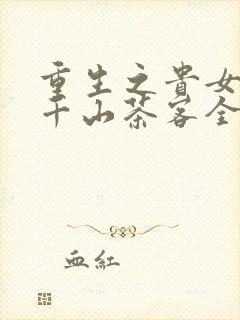 重生之貴女
千山茶客全
血紅